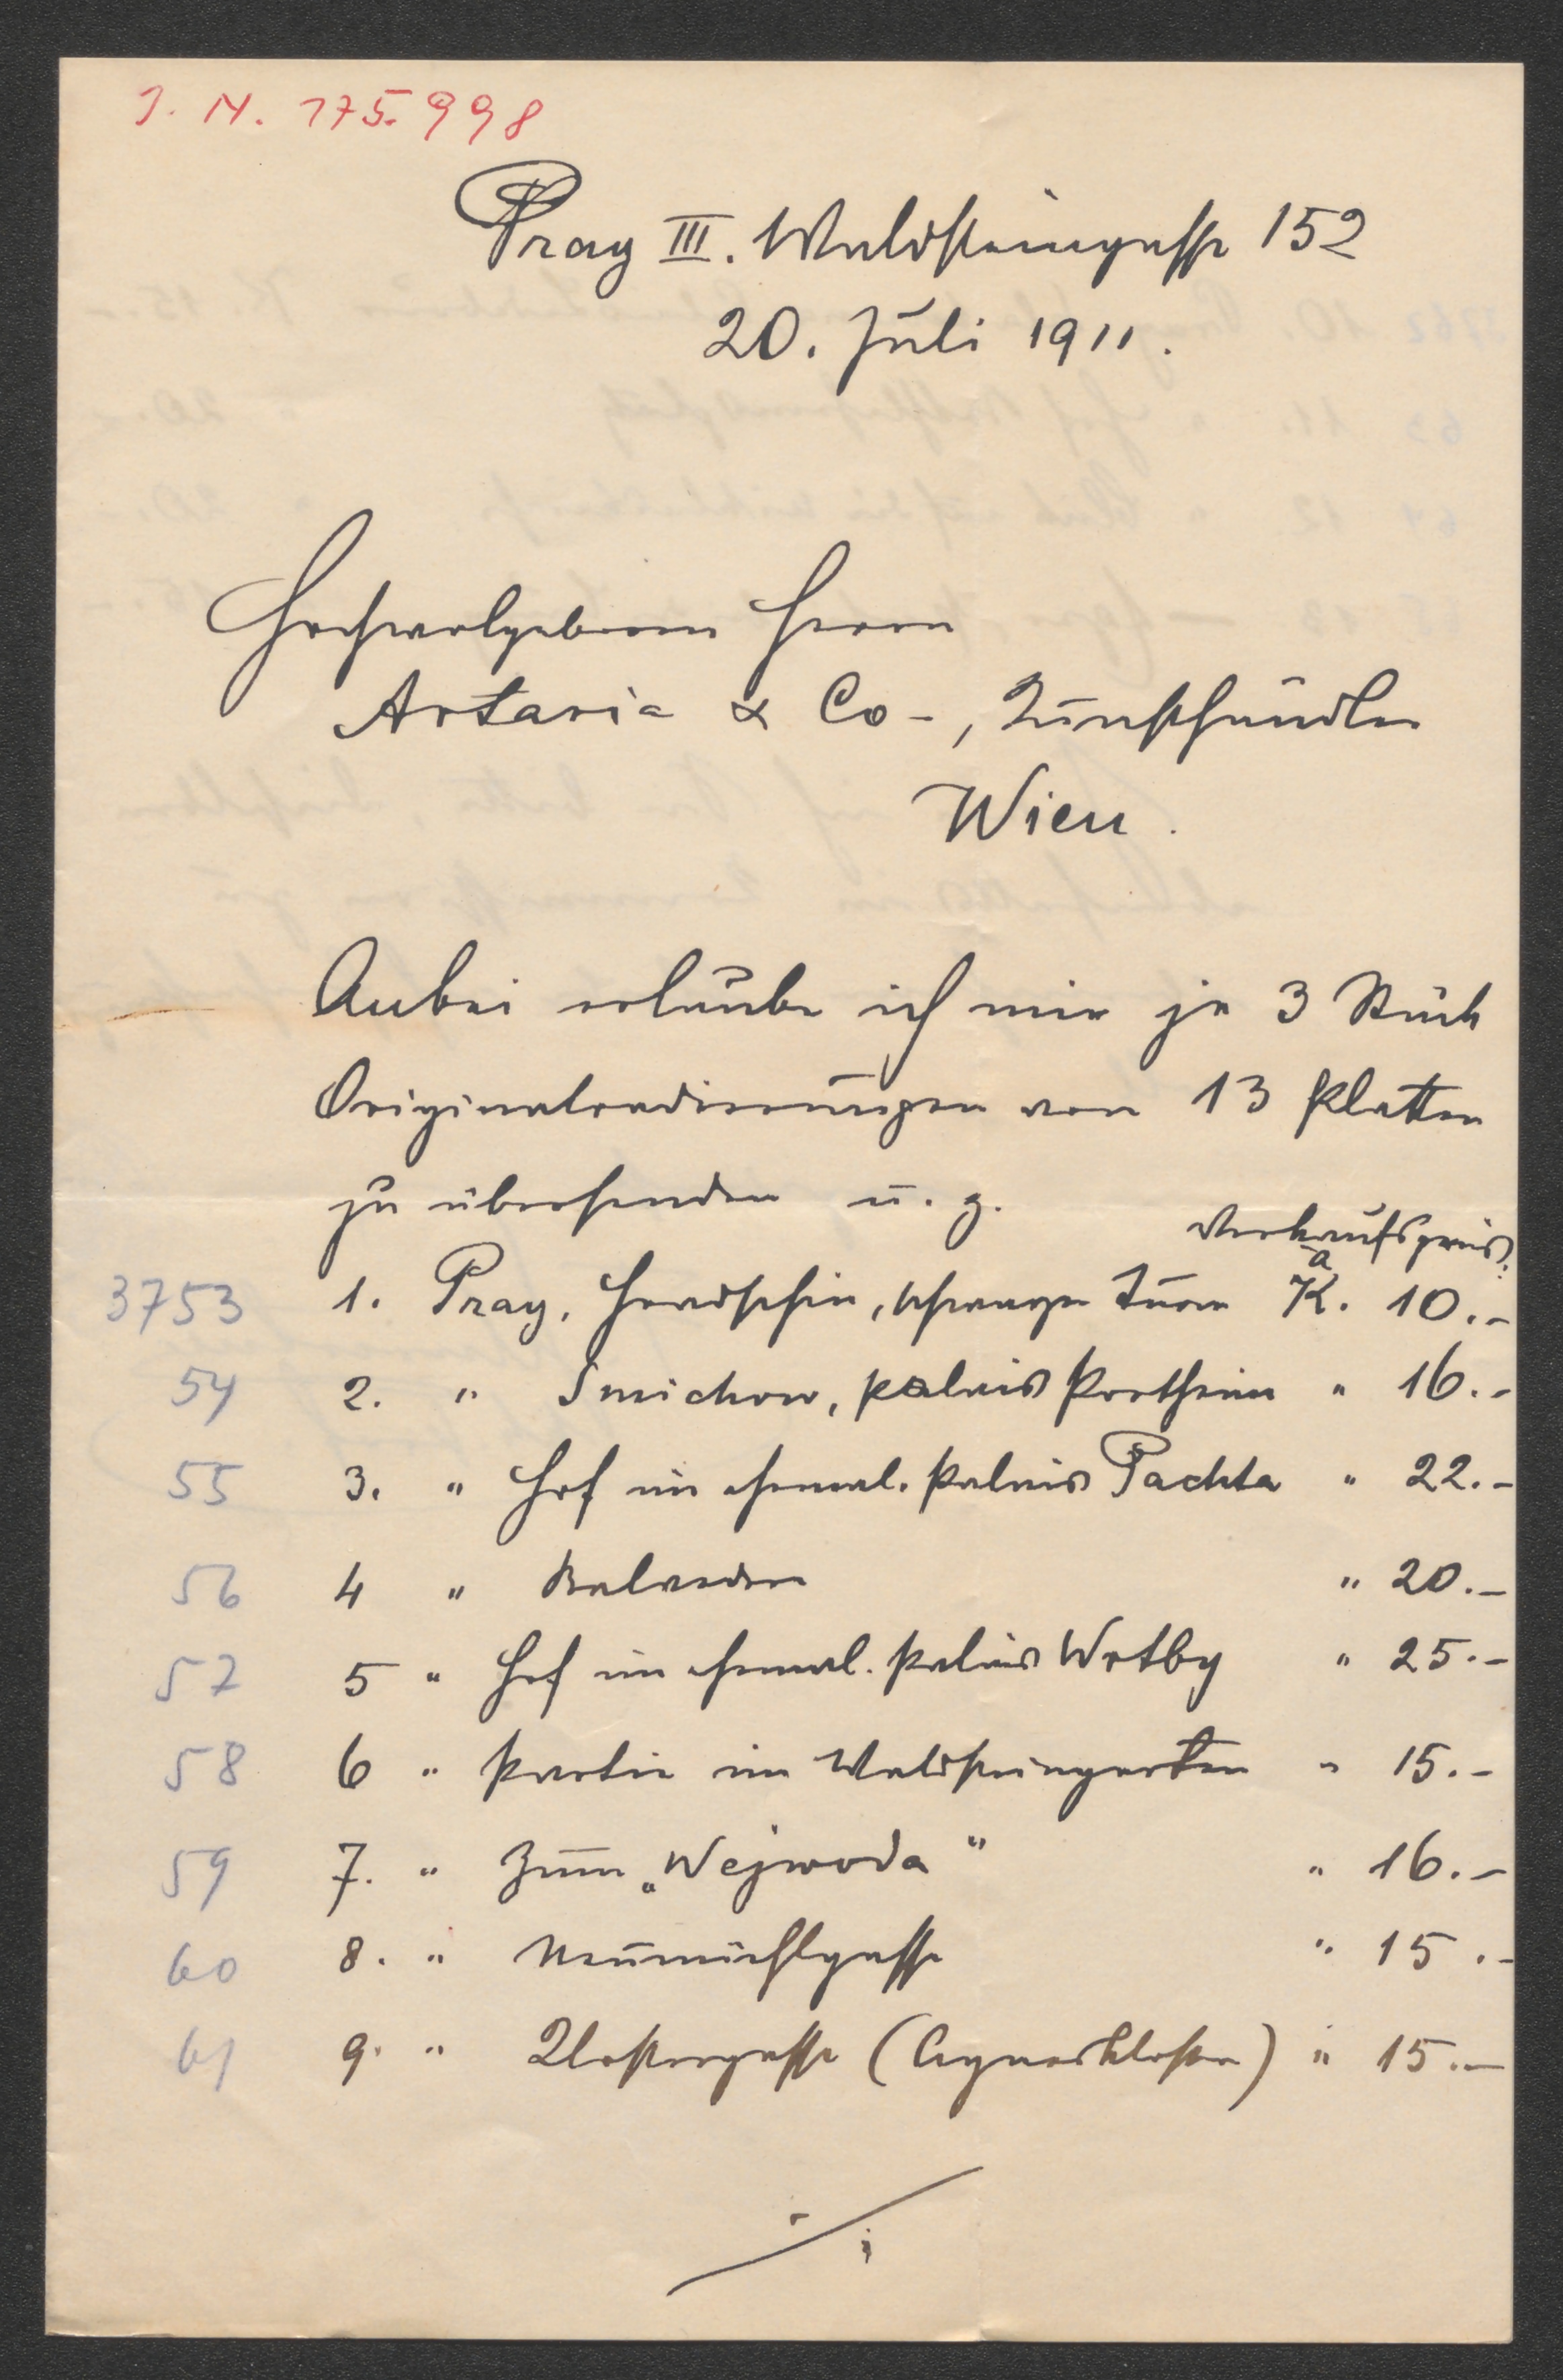 J. N. 175.998
Prag III. Waldsteingasse 152
20. Juli 1911.
Hochwolgeboren Herrn
Artaria & Co-, Kunsthändler
Wien.
Anbei erlaube ich mir je 3 Stück
Originalradierungen von 13 Platten
zu übersenden u. z.
Verkaufspreis:
3753 1. Prag, Hradschin, schwarzer Turm à K. 10.-
54 2. " Smichow, Palais Portheim " 16.-
55 3. " Hof im ehemal. Palais Pachta " 22.-
56 4 " Belvedere " 20.-
57 5 " Hof im ehemal. Palais Wrtby " 25.-
58 6 " Partie im Waldsteingarten " 15.-
59 7. " Zum „Wejwoda" " 16.-
60 8. " Neumühlgasse " 15.-
61 9. " Klostergasse (Agneskloster) " 15.-
./.